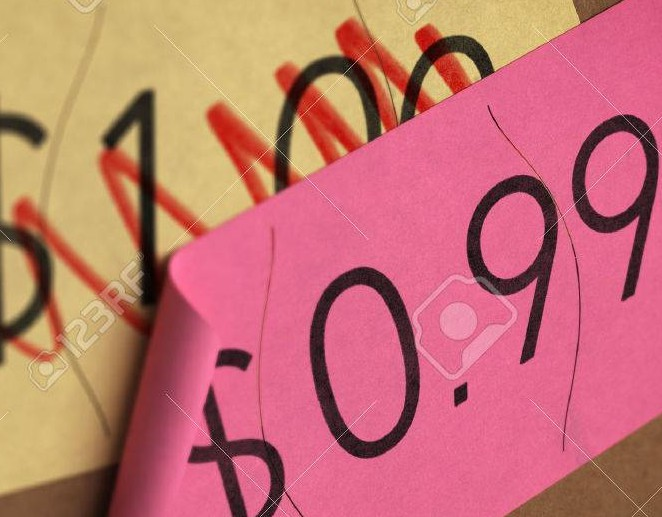 $1.00
$0.99
123RF